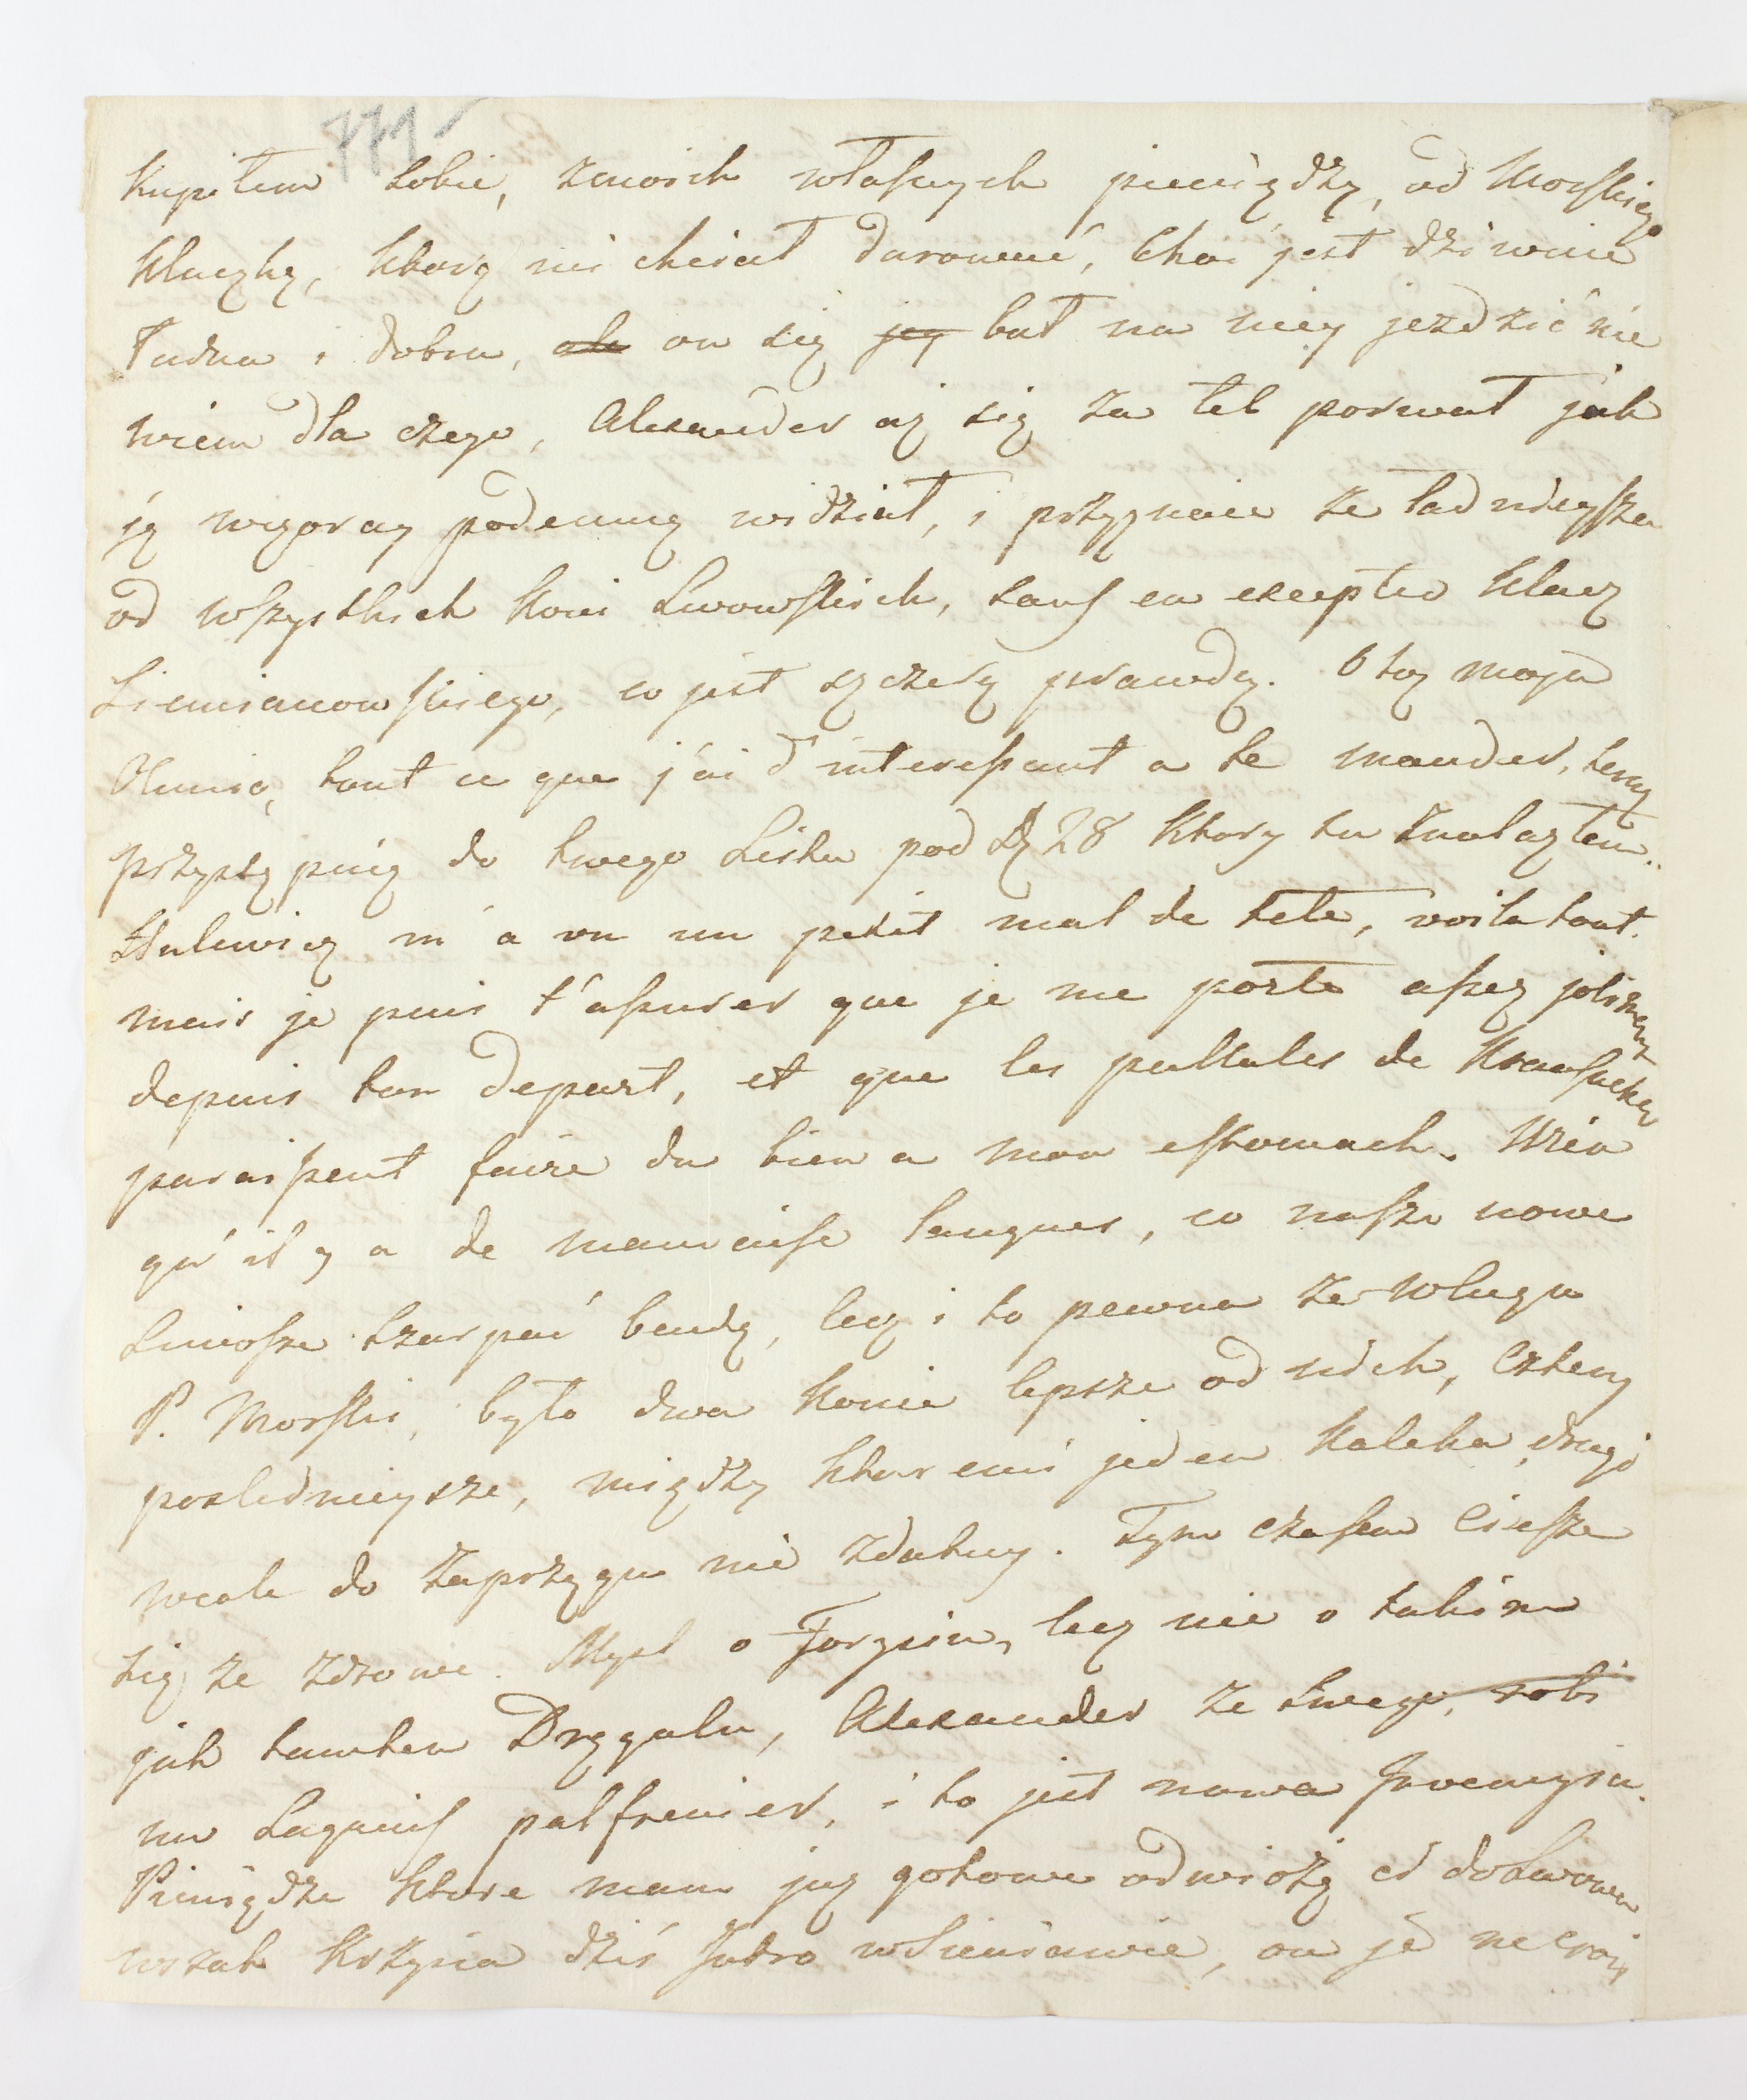 771
Kupiłem sobie, zmoich własnych pieniędzy, od Morskiego
klaczkę, ktorą nie chciał darować, choć jest dziwnie
ładna i dobra, ale on się jey bał na niey jezdzić nie
wiem dla czego, Alexander aż się za łeb porwał jak
ją wczoray podemną widział, i przyznaie że ładnieysza
od wszystkich koni Lwowskich, sauf en excepter klacz
Siemianowskiego, co jest szczerą prawdą. Otoż moja
Olunio, tout ce que j'ai d'interessant a te mander, teraz
przystąpię do twego Listu pod Dą 28 ktory tu znalazłem..
Hulewicz m'a vu un petit mal de tete, voila tout.
mais je puis t'assurer que je me porte assez joliment
depuis ton depart, et que les pastules de
paraissent faire du bien a mon estomach. Wiéa
qu'il y a de mauvaise langues, co nasze nowe
Siwosze szarpać bendą, lecz i to pewna że wCugu
P. Morski, było dwa konie lepsze od nich, cztery
poslednieysze, między ktoremi jeden kaleka drugi
wcale do zaprzęgu nie zdatny. Tym czasem ciesze
się że zdrowe. Mysl o Forysiu, lecz nie o takim
jak tamten Drągalu, Alexander ze swego, robi
un Laquais palfrenier, i to jest nowa Inwencyia.
Pieniądze ktore mam już gotowe odwiozę ci doLwowa
wszak Krzysia dziś Jutro wSieniawie, on je